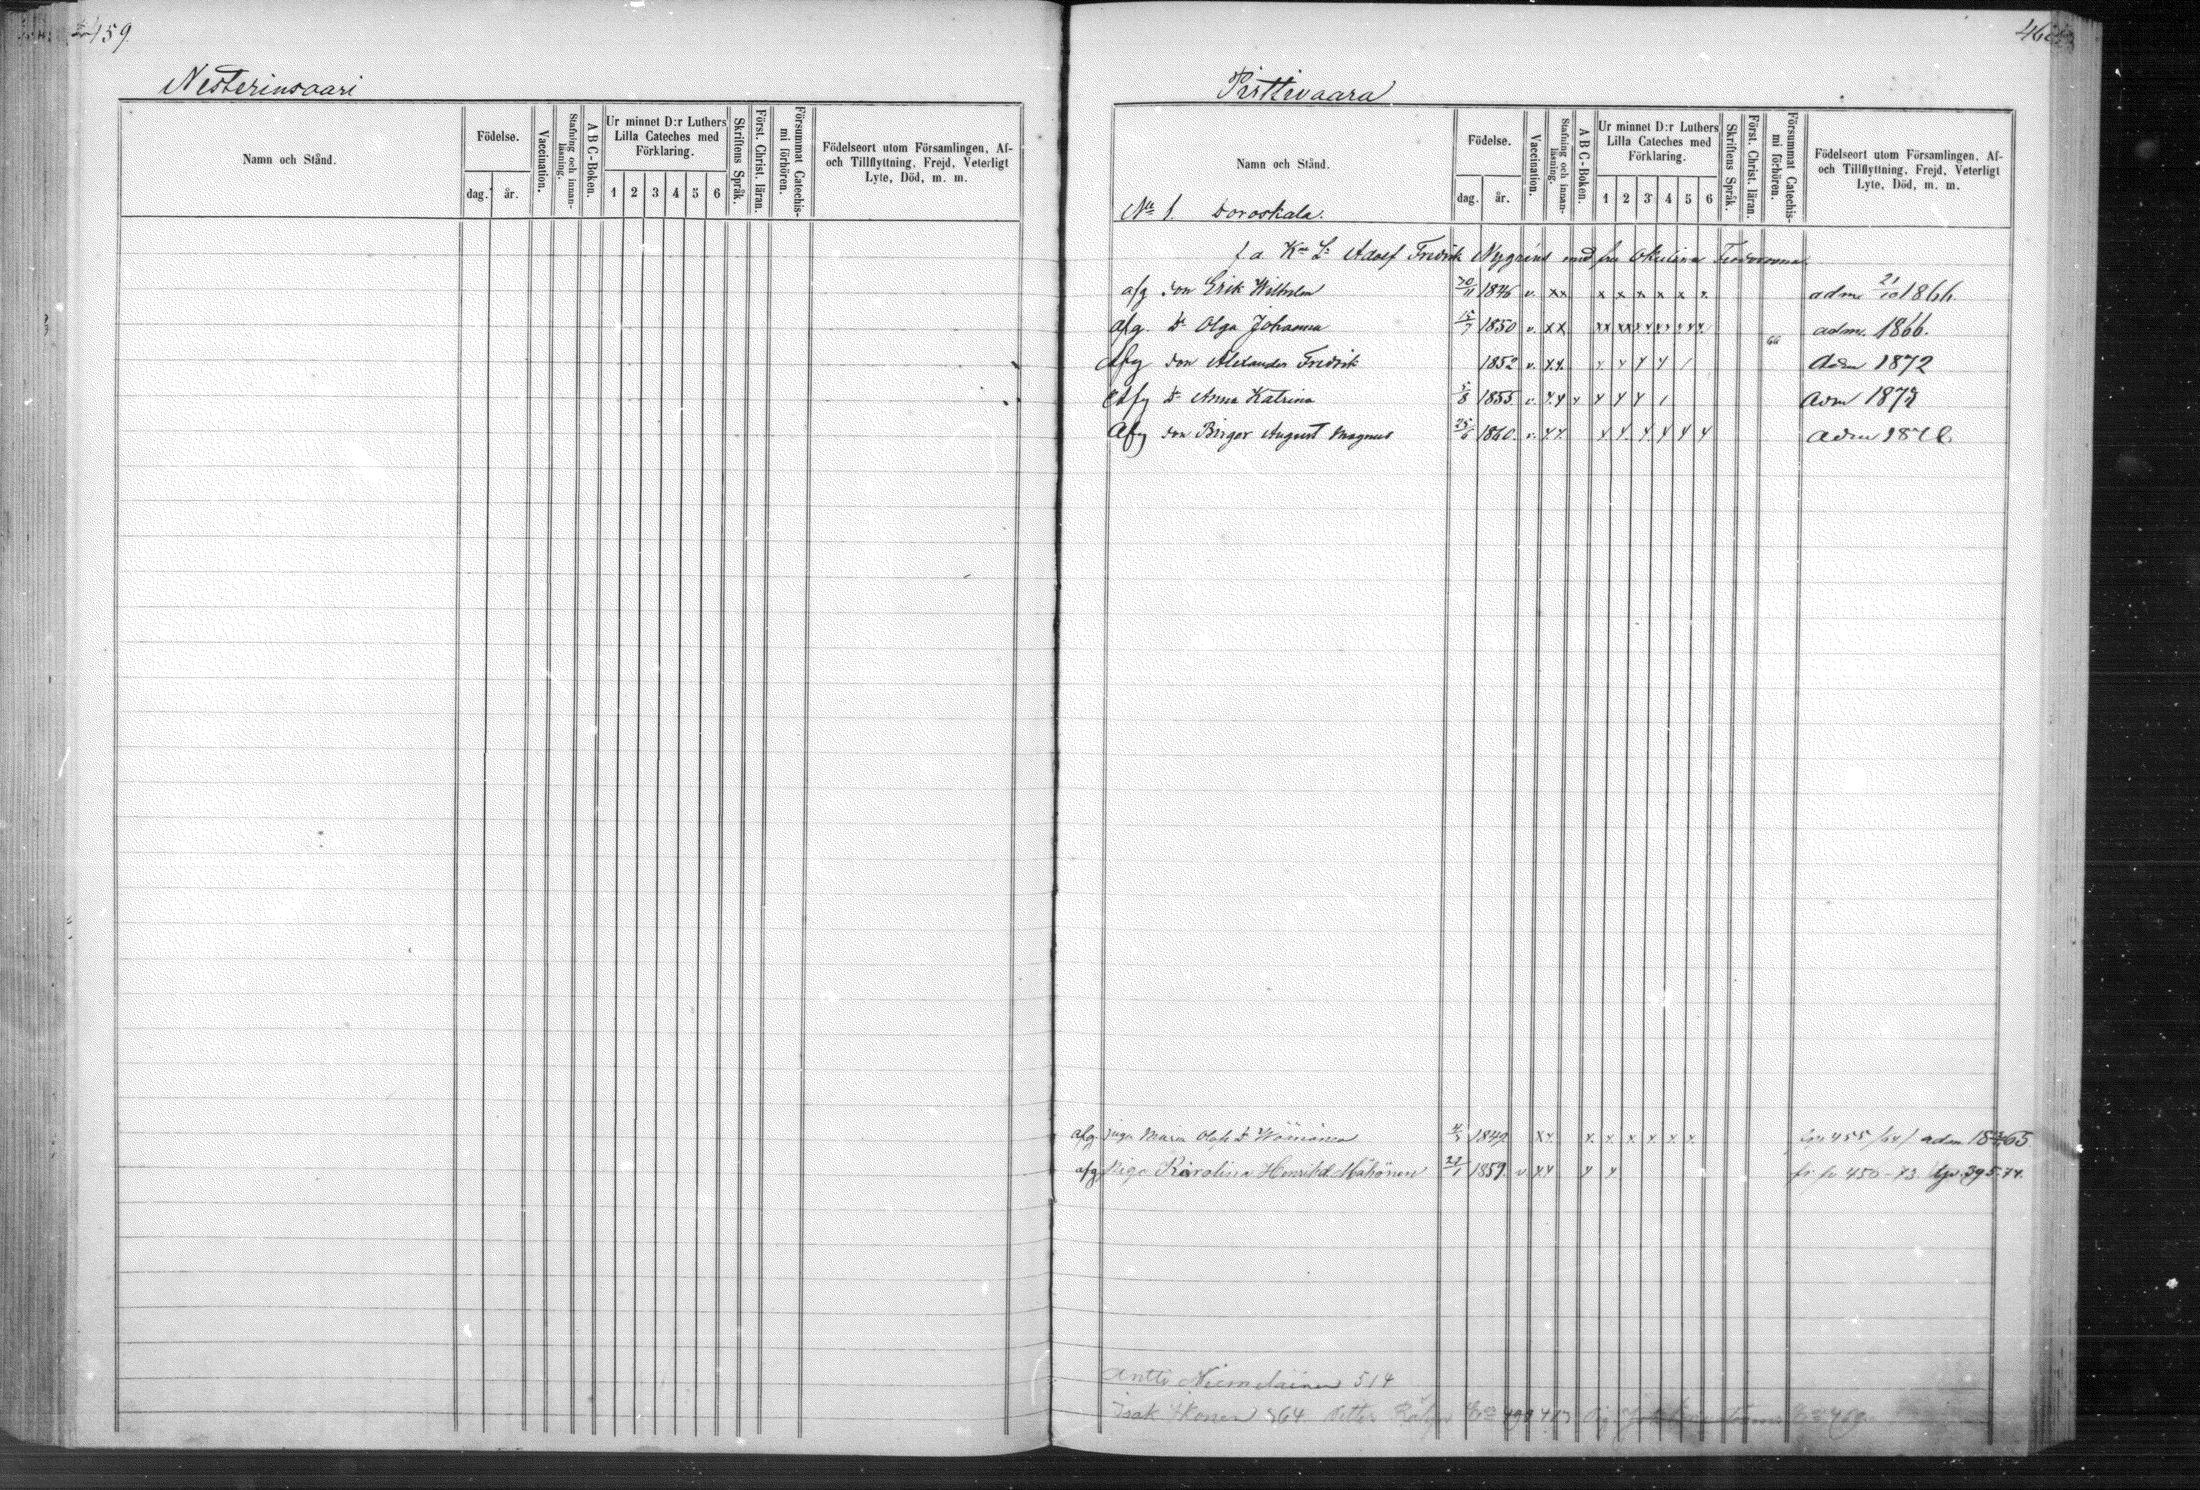 459.
Nesterinsaari
Namn och Stånd.
Födelse.
dag. år.
Vaccination.
Stafning och innan-läsning.
A B C-Boken.
Ur minnet D:r Luthers
Lilla Cateches med
Förklaring.
1 2 3 4 5 6
Skriftens Språk.
Först. Christ. läran.
Försummat Catechis-
mi förhören.
Födelseort utom Församlingen, Af-
och Tillflyttning, Frejd, Veterligt
Lyte, Död, m. m.
460
Pirttivaara
Namn och Stånd.
Födelse.
dag. år.
Vaccination.
Stafning och innan-läsning.
A B C-Boken.
Ur minnet D:r Luthers
Lilla Cateches med
Förklaring.
1 2 3 4 5 6
Skriftens Språk.
Först. Christ. läran.
Försummat Catechis-
mi förhören.
Födelseort utom Församlingen, Af-
och Tillflyttning, Frejd, Veterligt
Lyte, Död, m. m.
No 1. Doroskala.
f. a. Adolf Fredrik Nygréns med fru
afg son Erik Wilhelm 20/11 1846 v. xx x x x x x x. adm. 21/10 1866.
afg. Dr Olga Johanna 15/7 1850 v. xx xx xx xx xx xx xx 66 adm. 1866.
Afg son Alexander Fredrik 1852 v. xx. x x x x / adm 1872
Afg Dr Anna Katrina 5/8 1855 v. xx x x x x / adm 1873
Afg son Birger August Magnus 25/6 1860. v. xx x x x x x x adm
afg. Maria Olofs Dr 1849 xx x. x x x x x 455 /64/ adm 1865
afg Piga Karolina Henriksd. Mähönen 22/1 1859. v xx x x fr. 450-73. 395.74.
Antti Niemeläinen 514
Isak Ikonen 864